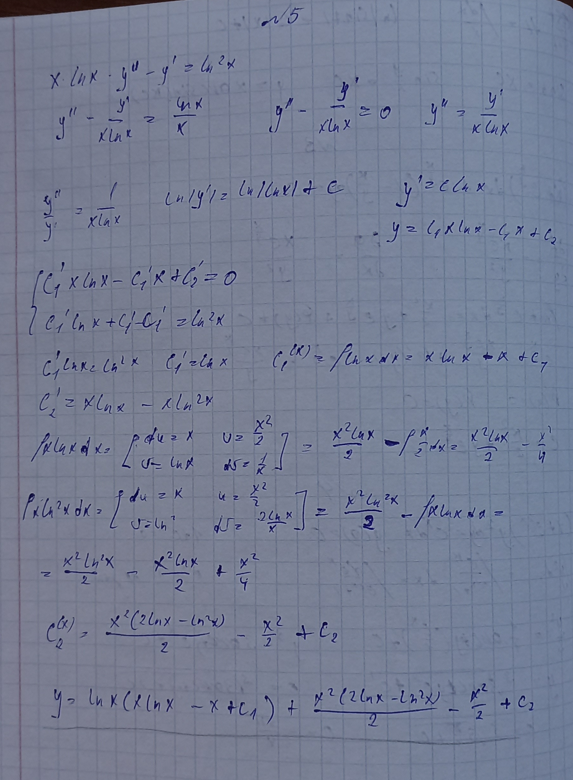 №5
x lnx · y'' - y' = ln²x
y'' - y'/(x lnx) = lnx/x    y'' - y'/(x lnx) = 0    y'' = y'/(x lnx)
y''/y' = 1/(x lnx)    ln|y'| = ln|lnx| + C    y' = C lnx
y = C₁x lnx - C₁x + C₂
{ C₁' x lnx - C₁' x + C₂' = 0
{ C₁' lnx + C₁' - C₁' = ln²x
C₁' lnx = ln²x    C₁' = lnx    C₁(x) = ∫lnx dx = x lnx - x + C₁
C₂' = x lnx - x ln²x
∫x lnx dx = [ du = x    u = x²/2    v = lnx    dv = 1/x ] = x² lnx/2 - ∫x/2 dx = x² lnx/2 - x²/4
∫x ln²x dx = [ du = x    u = x²/2    v = ln²    dv = 2lnx/x ] = x² ln²x/2 - ∫x lnx dx =
= x² ln²x/2 - x² lnx/2 + x²/4
C₂(x) = x²(2lnx - ln²x)/2 - x²/2 + C₂
y = lnx(x lnx - x + C₁) + x²(2lnx - ln²x)/2 - x²/2 + C₂